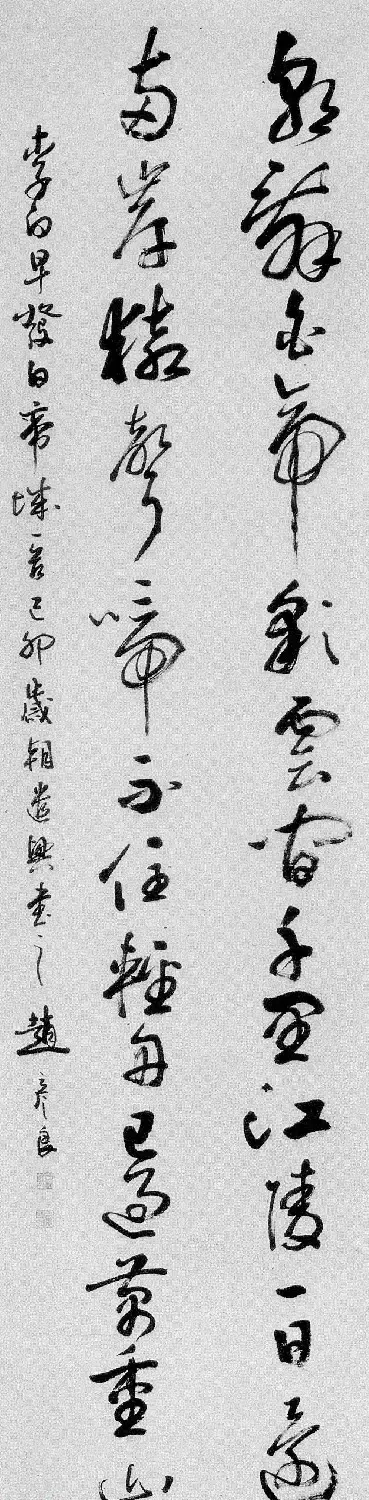 朝辭白帝彩雲間千里江陵一日還
兩岸猿聲啼不住輕舟已過萬重山
李白早發白帝城一首己卯歲朝遣興書之趙彥良